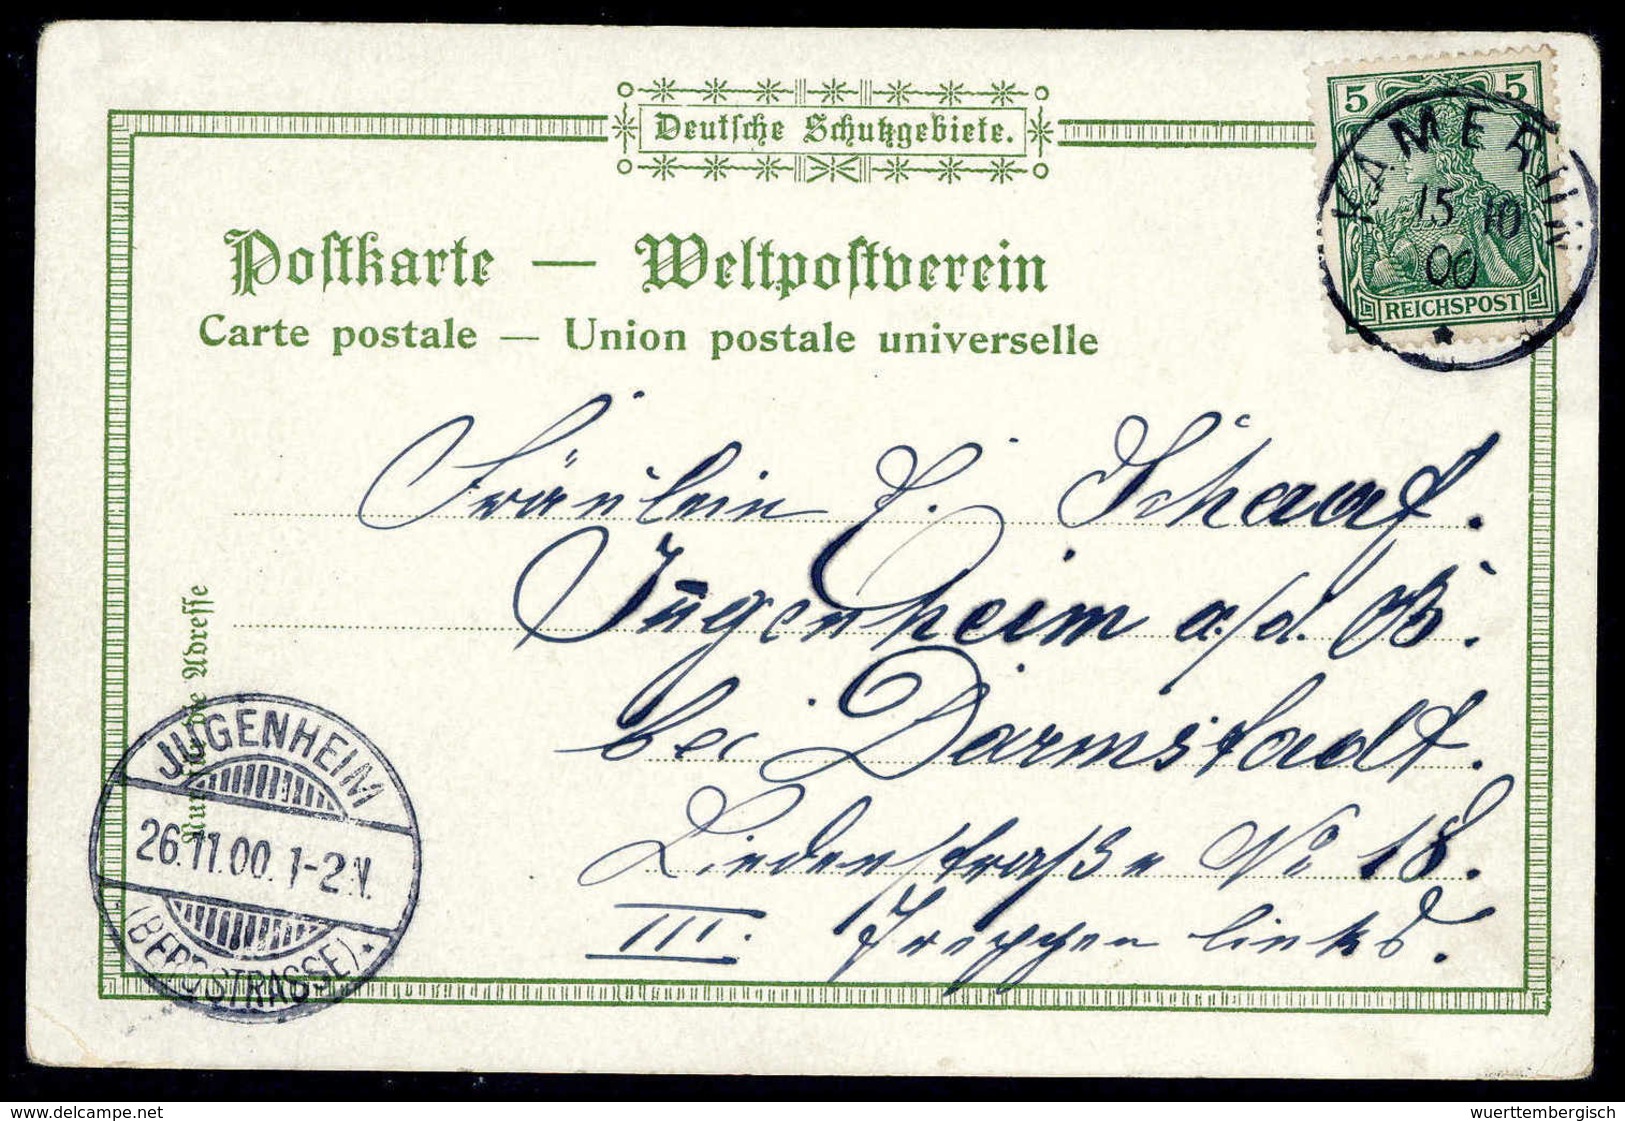 Deutsche Schutzgebiete.
Postkarte — Weltpostverein
Carte postale — Union postale universelle
5 5
REICHSPOST
KAMERUN
15 10
00
Fräulein E. Schaaf.
Jugenheim a/d. B.
bei Darmstadt.
Lindenstraße No 18.
III. Treppen links.
Nur für die Adresse
JUGENHEIM
26.11.00. 1-2 N.
(BERGSTRASSE)
www.delcampe.net
wuerttembergisch